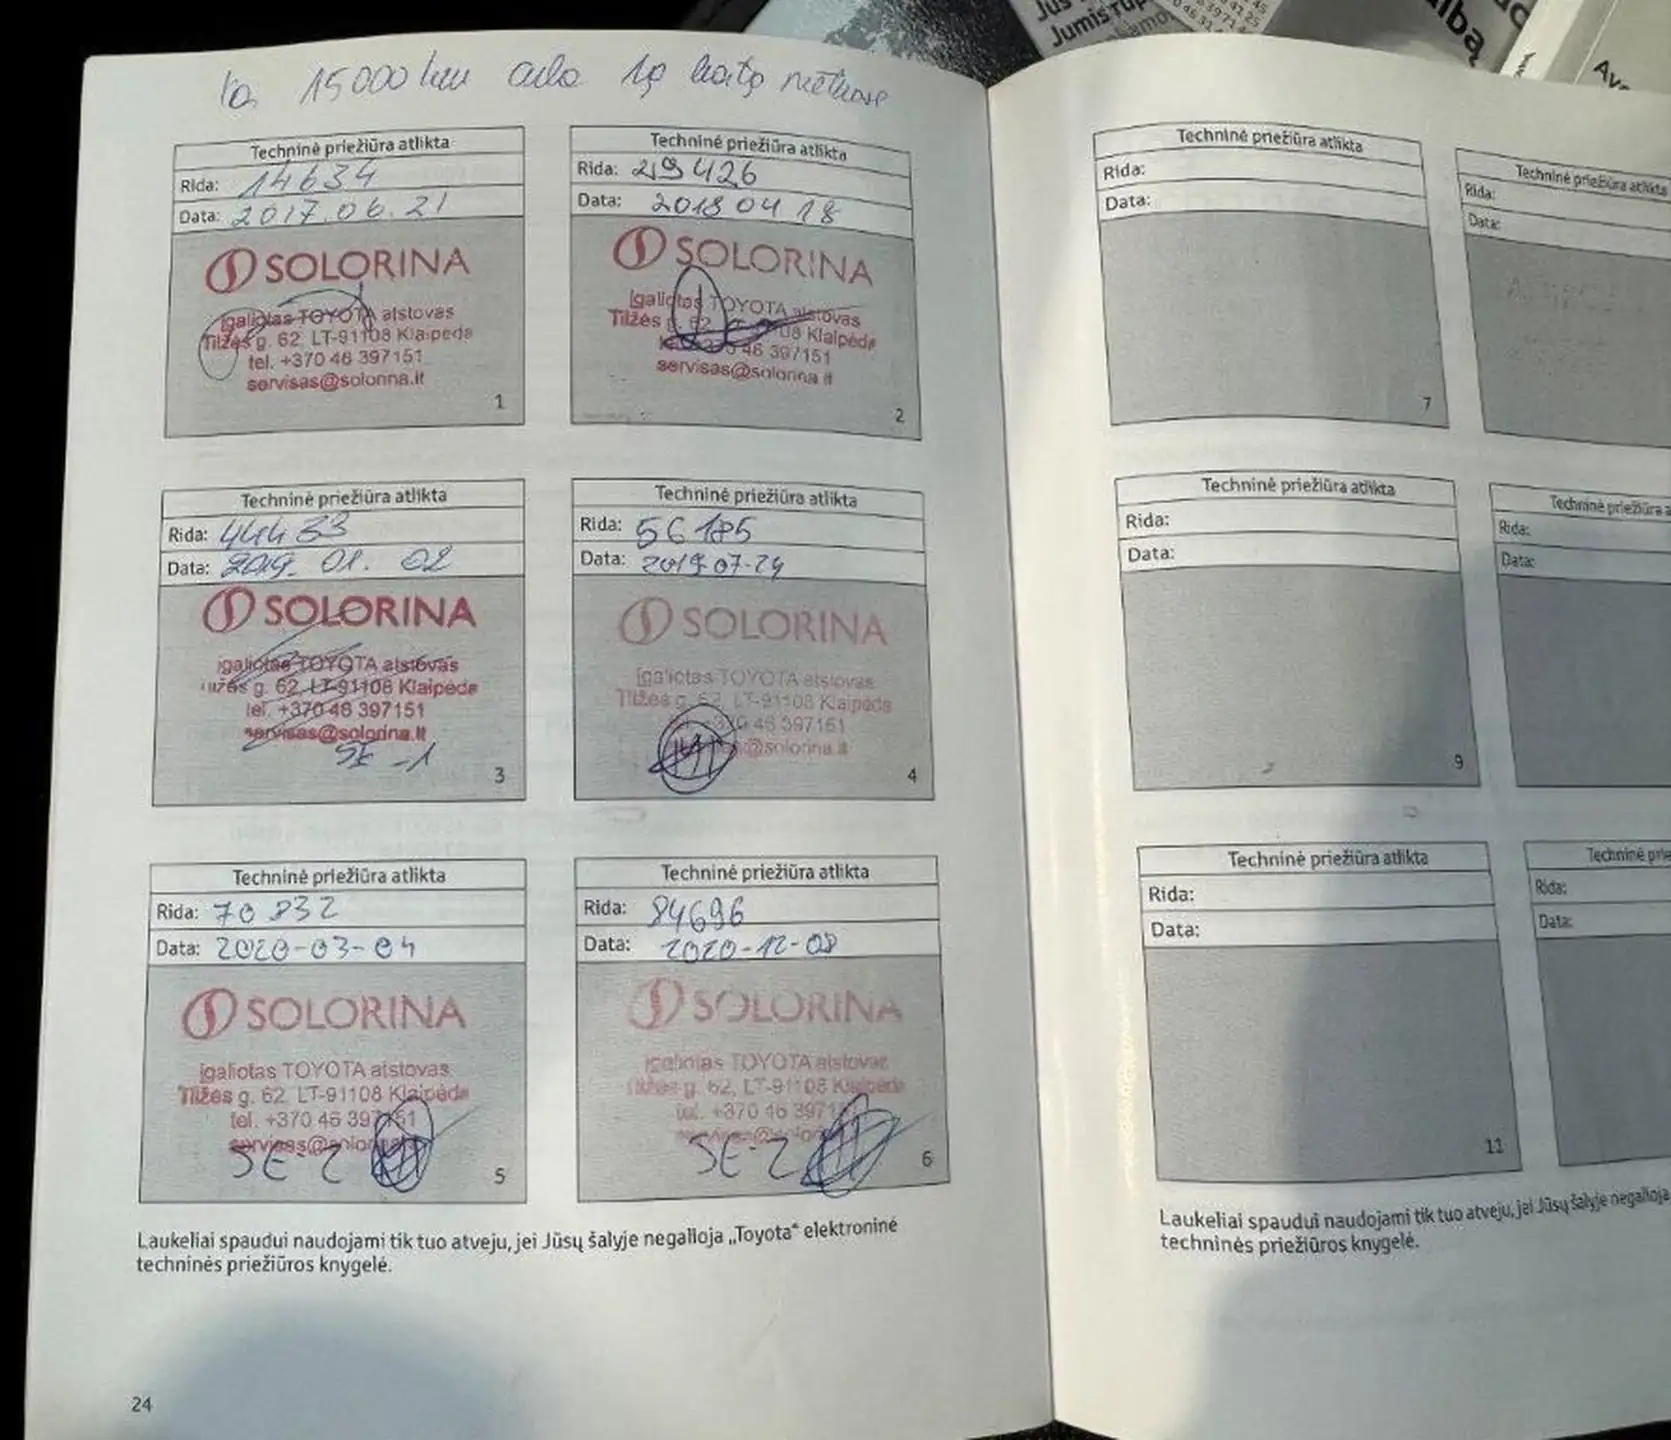 Ka 15000 km arba 1ą kartą metuose
Techninė priežiūra atlikta
Rida: 14634
Data: 2017.06.21
SOLORINA
Įgaliotas TOYOTA atstovas
Tilžės g. 62 LT-91108 Klaipėda
tel. +370 46 397151
servisas@solorina.lt
1
Techninė priežiūra atlikta
Rida: 29426
Data: 2018 04 18
SOLORINA
Įgaliotas TOYOTA atstovas
Tilžės g. 62 LT-91108 Klaipėda
tel. +370 46 397151
servisas@solorina.lt
2
Techninė priežiūra atlikta
Rida: 44433
Data: 2019. 01. 02
SOLORINA
Įgaliotas TOYOTA atstovas
Tilžės g. 62, LT-91108 Klaipėda
tel. +370 46 397151
servisas@solorina.lt
SE-1
3
Techninė priežiūra atlikta
Rida: 56185
Data: 2019-07-24
SOLORINA
Įgaliotas TOYOTA atstovas
Tilžės g. 62, LT-91108 Klaipėda
tel. +370 46 397151
servisas@solorina.lt
4
Techninė priežiūra atlikta
Rida: 70832
Data: 2020-03-04
SOLORINA
Įgaliotas TOYOTA atstovas
Tilžės g. 62, LT-91108 Klaipėda
tel. +370 46 397151
servisas@solorina.lt
SE-2
5
Techninė priežiūra atlikta
Rida: 84696
Data: 2020-12-08
SOLORINA
Įgaliotas TOYOTA atstovas
Tilžės g. 62, LT-91108 Klaipėda
tel. +370 46 397151
SE-2
6
Laukeliai spaudui naudojami tik tuo atveju, jei Jūsų šalyje negalioja „Toyota“ elektroninė
techninės priežiūros knygelė.
24
Techninė priežiūra atlikta
Rida:
Data:
7
Techninė priežiūra atlikta
Rida:
Data:
Techninė priežiūra atlikta
Rida:
Data:
9
Techninė priežiūra a
Rida:
Data:
Techninė priežiūra atlikta
Rida:
Data:
11
Techninė prie
Rida:
Data:
Laukeliai spaudui naudojami tik tuo atveju, jei Jūsų šalyje negalioja
techninės priežiūros knygelė.